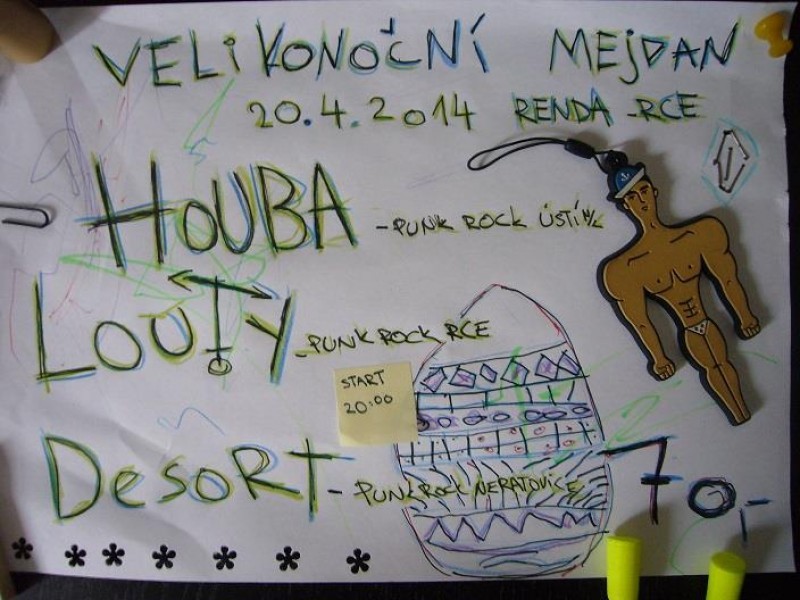 VELiKONOČNÍ MEJDAN
20.4.2014 RENDA RCE
HOUBA - PUNK ROCK ÚSTÍ N/L
LOUTY - PUNK ROCK RCE
START
20:00
DESORT - PUNK ROCK NERATOVICE
70,-